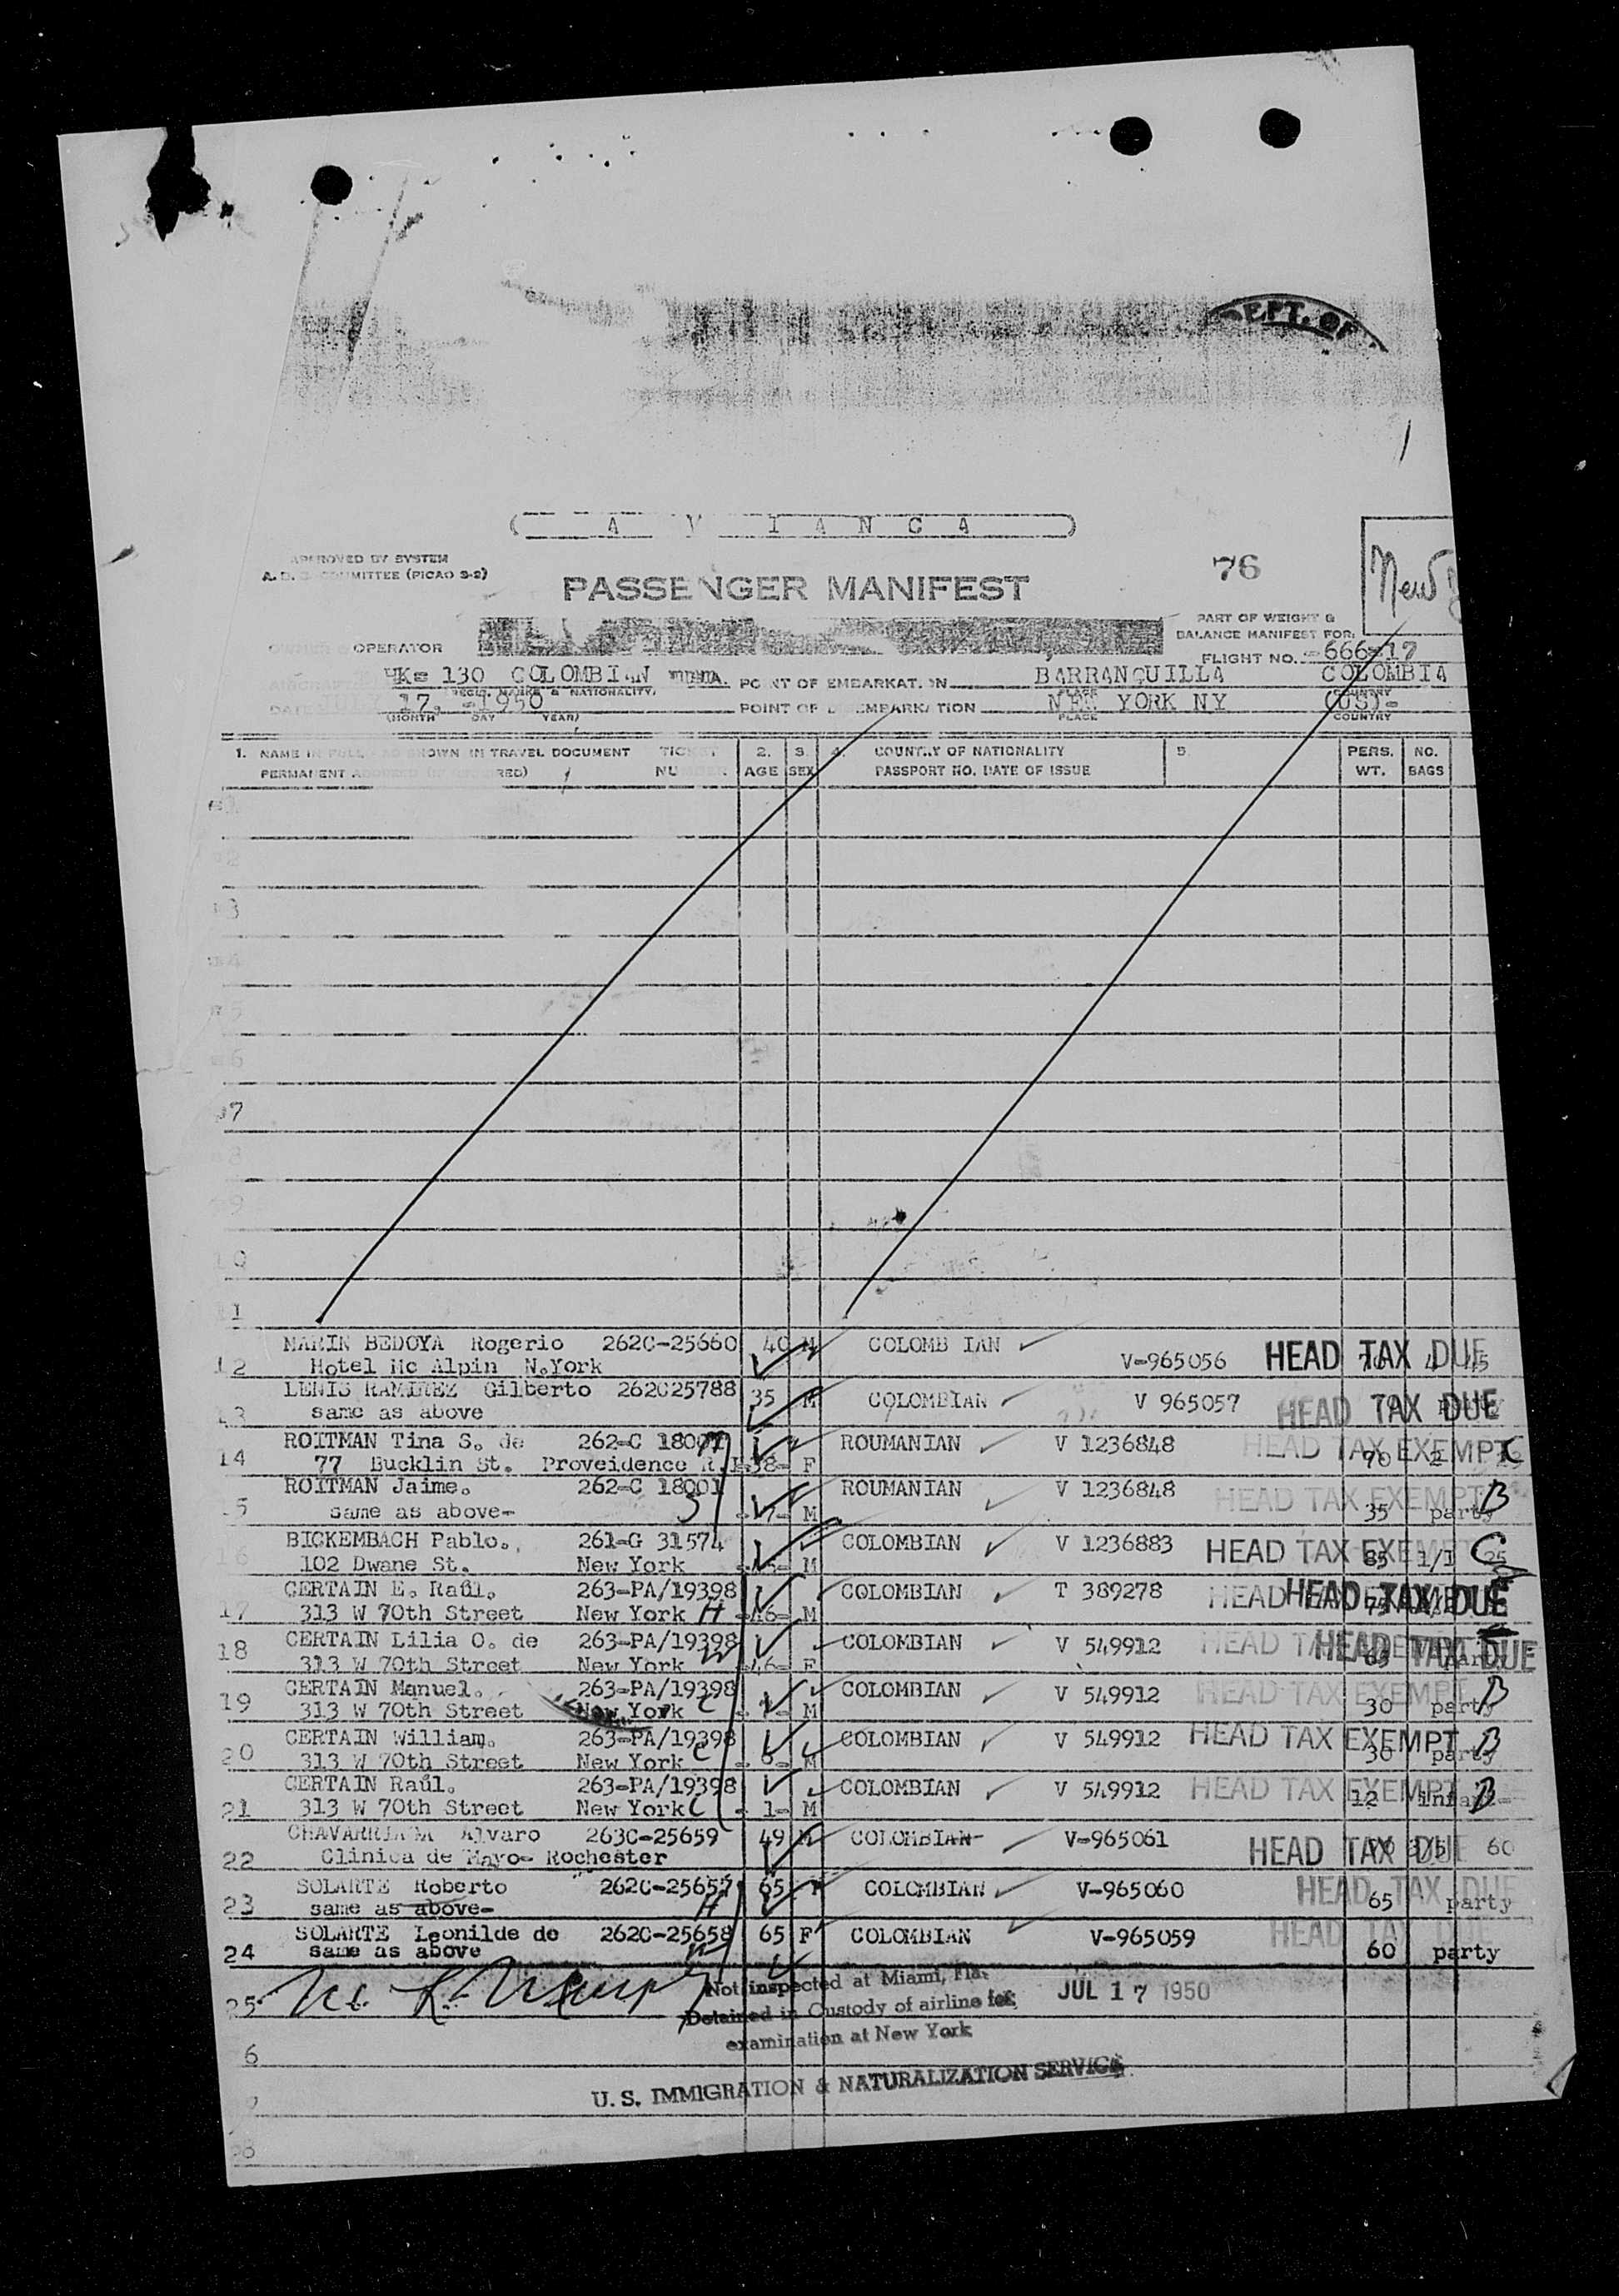 DEPT. OF
1
A V I A N C A
APPROVED BY SYSTEM
A. D. COMMITTEE (PICAO S-2)
76
New
PASSENGER MANIFEST
PART OF WEIGHT &
BALANCE MANIFEST FOR:
OPERATOR
FLIGHT NO. -666-17
HK- 130 COLOMBIAN POINT OF EMBARKATION BARRANQUILLA COLOMBIA
REGIS. MARKS & NATIONALITY. PLACE COUNTRY
DATE 17, -1950 POINT OF DISEMBARKATION NEW YORK NY (US)-
(MONTH DAY YEAR) PLACE COUNTRY
1. NAME IN FULL AS SHOWN IN TRAVEL DOCUMENT TICKET 2. 3. 4. COUNTRY OF NATIONALITY 5. PERS. NO.
PERMANENT ADDRESS (IF REQUIRED) NUMBER AGE SEX PASSPORT NO. DATE OF ISSUE WT. BAGS
1
2
3
4
5
6
7
8
9
10
11
MARIN BEDOYA Rogerio 262C-25660 40 M COLOMB IAN
12 Hotel Mc Alpin N.York V-965056 HEAD TAX DUE
LENIS RAMIREZ Gilberto 262C25788 35 M COLOMBIAN V 965057 HEAD TAX DUE
13 same as above
ROITMAN Tina S. de 262-C 18001 ROUMANIAN V 1236848 HEAD TAX EXEMPT
14 77 Bucklin St. Proveidence R.I. -38- F 90 2
ROITMAN Jaime. 262-C 18001 ROUMANIAN V 1236848 HEAD TAX EXEMPT B
15 same as above- -7- M 35 party
BICKEMBACH Pablo. 261-G 31574 COLOMBIAN V 1236883 HEAD TAX EXEMPT C
16 102 Dwane St. New York M 85 1/1 25
CERTAIN E. Raúl. 263-PA/19398 COLOMBIAN T 389278 HEAD TAX DUE
17 313 W 70th Street New York H -46- M 75
CERTAIN Lilia O. de 263-PA/19398 COLOMBIAN V 549912 HEAD TAX DUE
18 313 W 70th Street New York W -46- F party
CERTAIN Manuel. 263-PA/19398 COLOMBIAN V 549912 HEAD TAX EXEMPT B
19 313 W 70th Street New York C M 30 party
CERTAIN William. 263-PA/19398 COLOMBIAN V 549912 HEAD TAX EXEMPT B
20 313 W 70th Street New York C M 30 party
CERTAIN Raúl. 263-PA/19398 COLOMBIAN V 549912 HEAD TAX EXEMPT B
21 313 W 70th Street New York C - 1- M 12 infant-
Alvaro 263C-25659 49 M COLOMBIAN- V-965061 HEAD TAX DUE 60
22 Clinica de Mayo- Rochester
SOLARTE Roberto 262C-25657 65 COLOMBIAN V-965060 HEAD TAX DUE
23 same as above- H 65 party
SOLARTE Leonilde de 262C-25658 65 F COLOMBIAN V-965059 HEAD TAX DUE
24 same as above W 60 party
25
Not inspected at Miami, Fla.
Detained in Custody of airline for
examination at New York
JUL 17 1950
6
U. S. IMMIGRATION & NATURALIZATION SERVICE
7
28